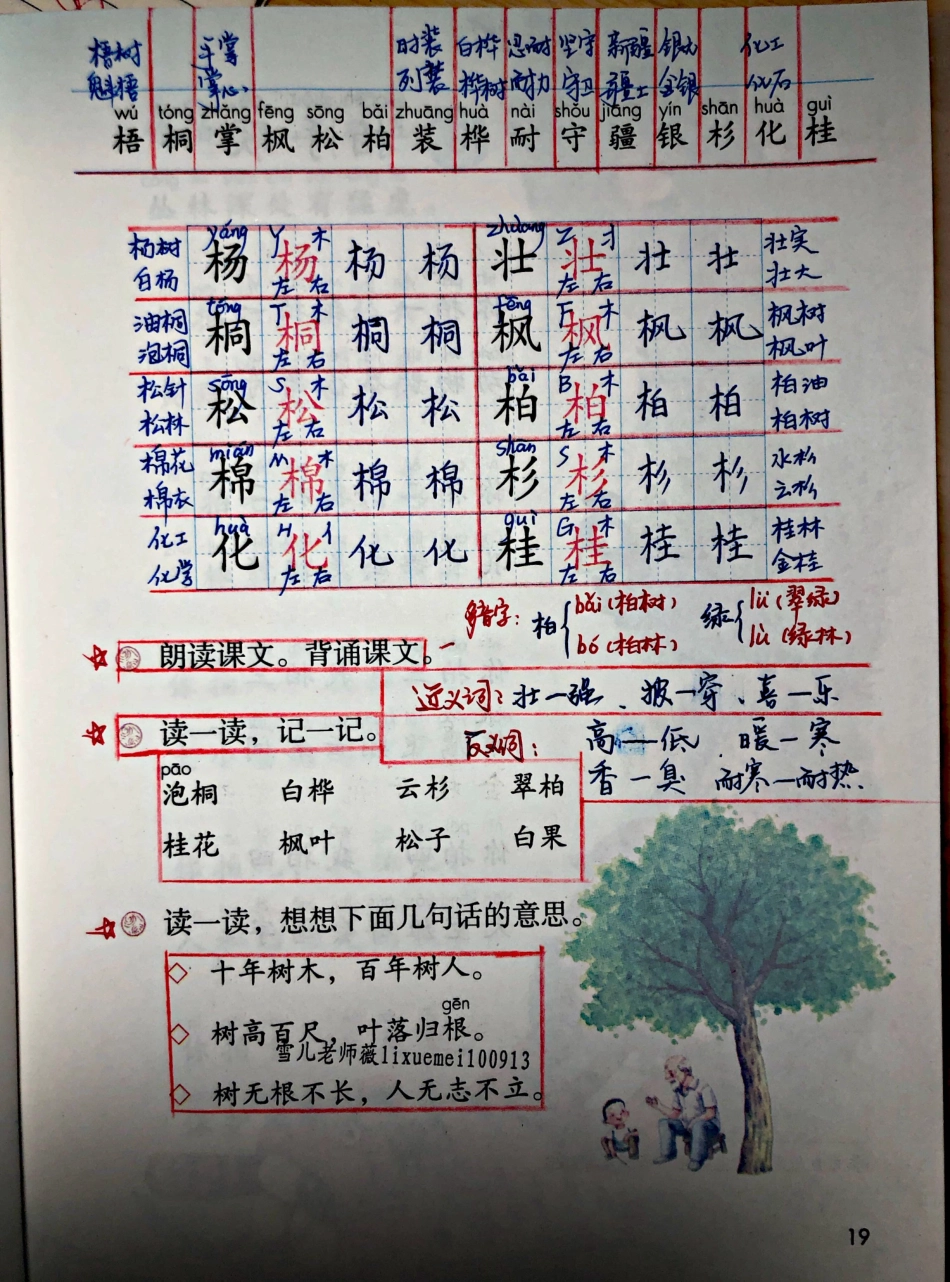 梧树 手掌 时装 白桦 忍耐 坚守 新疆 银九 化工
魁梧 掌心 列装 桦树 耐力 守卫 疆土 金银 化石
wú tóng zhǎng fēng sōng bǎi zhuāng huà nài shǒu jiāng yín shān huà guì
梧 桐 掌 枫 松 柏 装 桦 耐 守 疆 银 杉 化 桂
yáng Y 木 zhuàng Z 丬
杨树 杨 杨 杨 杨 壮 壮 壮 壮 壮实
白杨 左 右 左 右 壮大
tóng T 木 fēng F 木
油桐 桐 桐 桐 桐 枫 枫 枫 枫 枫树
泡桐 左 右 左 右 枫叶
sōng S 木 bǎi B 木
松针 松 松 松 松 柏 柏 柏 柏 柏油
松林 左 右 左 右 柏树
mián M 木 shān S 木
棉花 棉 棉 棉 棉 杉 杉 杉 杉 水杉
棉衣 左 右 左 右 云杉
huà H 亻 guì G 木
化工 化 化 化 化 桂 桂 桂 桂 桂林
化学 左 右 左 右 金桂
多音字: 柏 bǎi(柏树) bó(柏林) 绿 lǜ(翠绿) lù(绿林)
朗读课文。背诵课文。
近义词: 壮一强、披一穿、喜一乐
读一读，记一记。
反义词: 高一低 暖一寒
香一臭 耐寒一耐热.
pāo
泡桐 白桦 云杉 翠柏
桂花 枫叶 松子 白果
读一读，想想下面几句话的意思。
◇ 十年树木，百年树人。
gēn
◇ 树高百尺，叶落归根。
雪儿老师薇lixuemei100913
◇ 树无根不长，人无志不立。
19